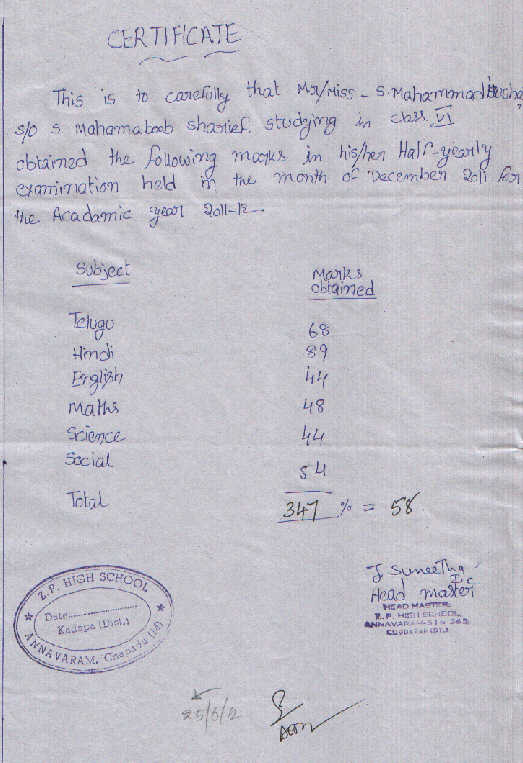 CERTIFICATE
This is to carefully that Mr/Miss - S. Mahammad
S/o S. Mahamaboob sharief. studying in class VI
obtained the following marks in his/her Half-yearly
examination held in the month of December 2011 for
the Academic year 2011-12.-
Subject Marks obtained
Telugu 68
Hindi 89
English 44
Maths 48
Science 44
Social 54
Total 347 % = 58
J Suneetha
I/c
Head master
HEAD MASTER,
Z.P. HIGH SCHOOL,
ANNAVARAM-516 362
CUDDAPAH (DT.)
Z.P. HIGH SCHOOL
Date
Kadapa (Dist.)
ANNAVARAM,